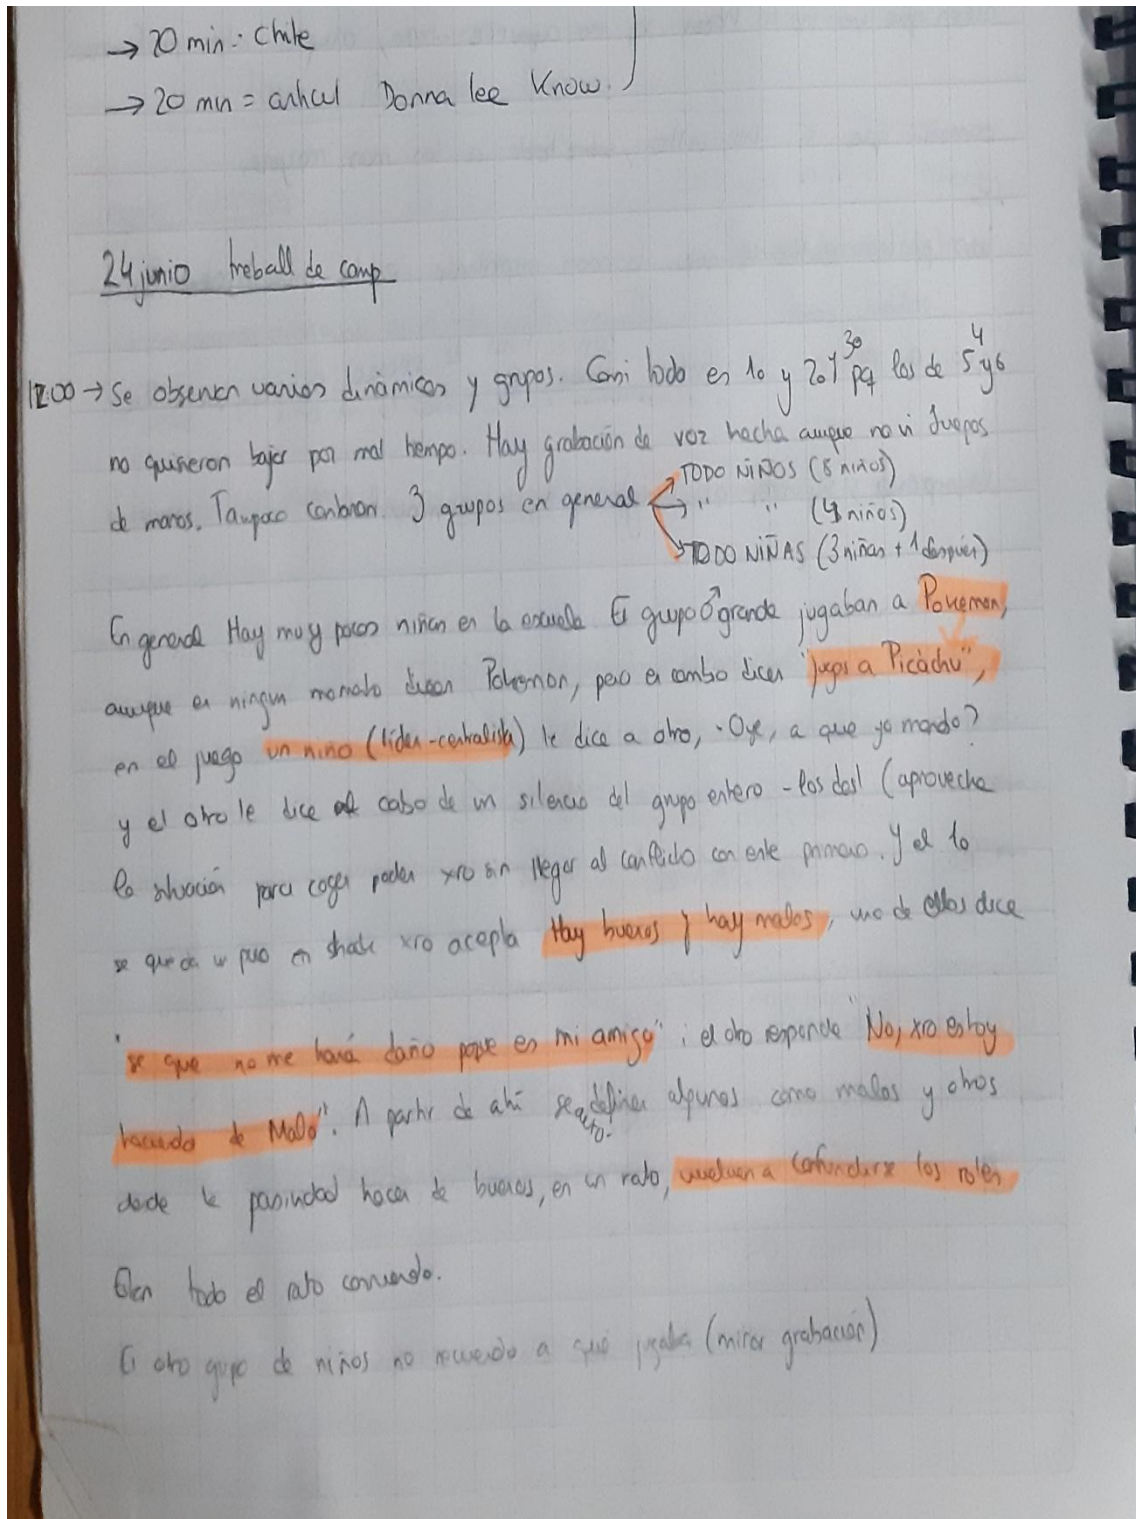 → 20 min: Chile
→ 20 min = Donna lee Know.
24 junio treball de camp
12:00 → Se observan varias dinámicas y grupos. Casi todo es 1o y 2o y 3o pq los de 4 5 y 6
no quisieron bajar por mal tiempo. Hay grabación de voz hecha aunque no vi Juegos
de manos. Tampoco cantaron. 3 grupos en general
TODO NIÑOS (8 niños)
" " (4 niños)
TODO NIÑAS (3 niñas + 1 después)
En general Hay muy pocas niñas en la escuela El grupo ♂ grande jugaban a Pokemon,
aunque en ningun momento dicen Pokemon, pero en cambio dicen "jugar a Picachu",
en el juego un niño (líder-centralista) le dice a otro, -Oye, a que yo mando?
y el otro le dice al cabo de un silencio del grupo entero - los dos! (aprovecha
la situación para coger poder xro sin llegar al conflicto con este primero. Y el 1o
se queda un poco en shock xro acepta Hay buenos y hay malos, uno de ellos dice
"se que no me hará daño porque es mi amigo"; el otro responde "No, xro estoy
haciendo de Malo". A partir de ahí se auto- definen algunos como malos y otros
desde la pasividad hacen de buenos, en un rato, vuelven a confundirse los roles
Están todo el rato corriendo.
El otro grupo de niños no recuerdo a qué jugaba (mirar grabación)